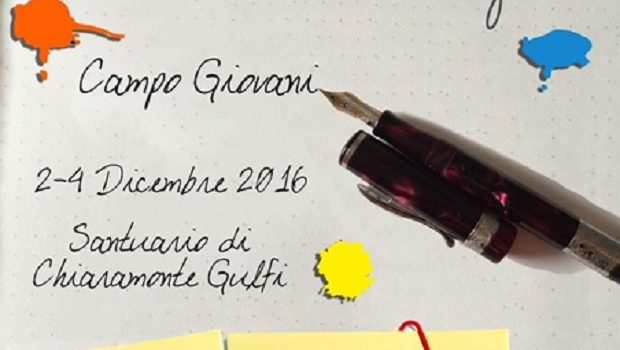 Campo Giovani
2-4 Dicembre 2016
Santuario di
Chiaramonte Gulfi